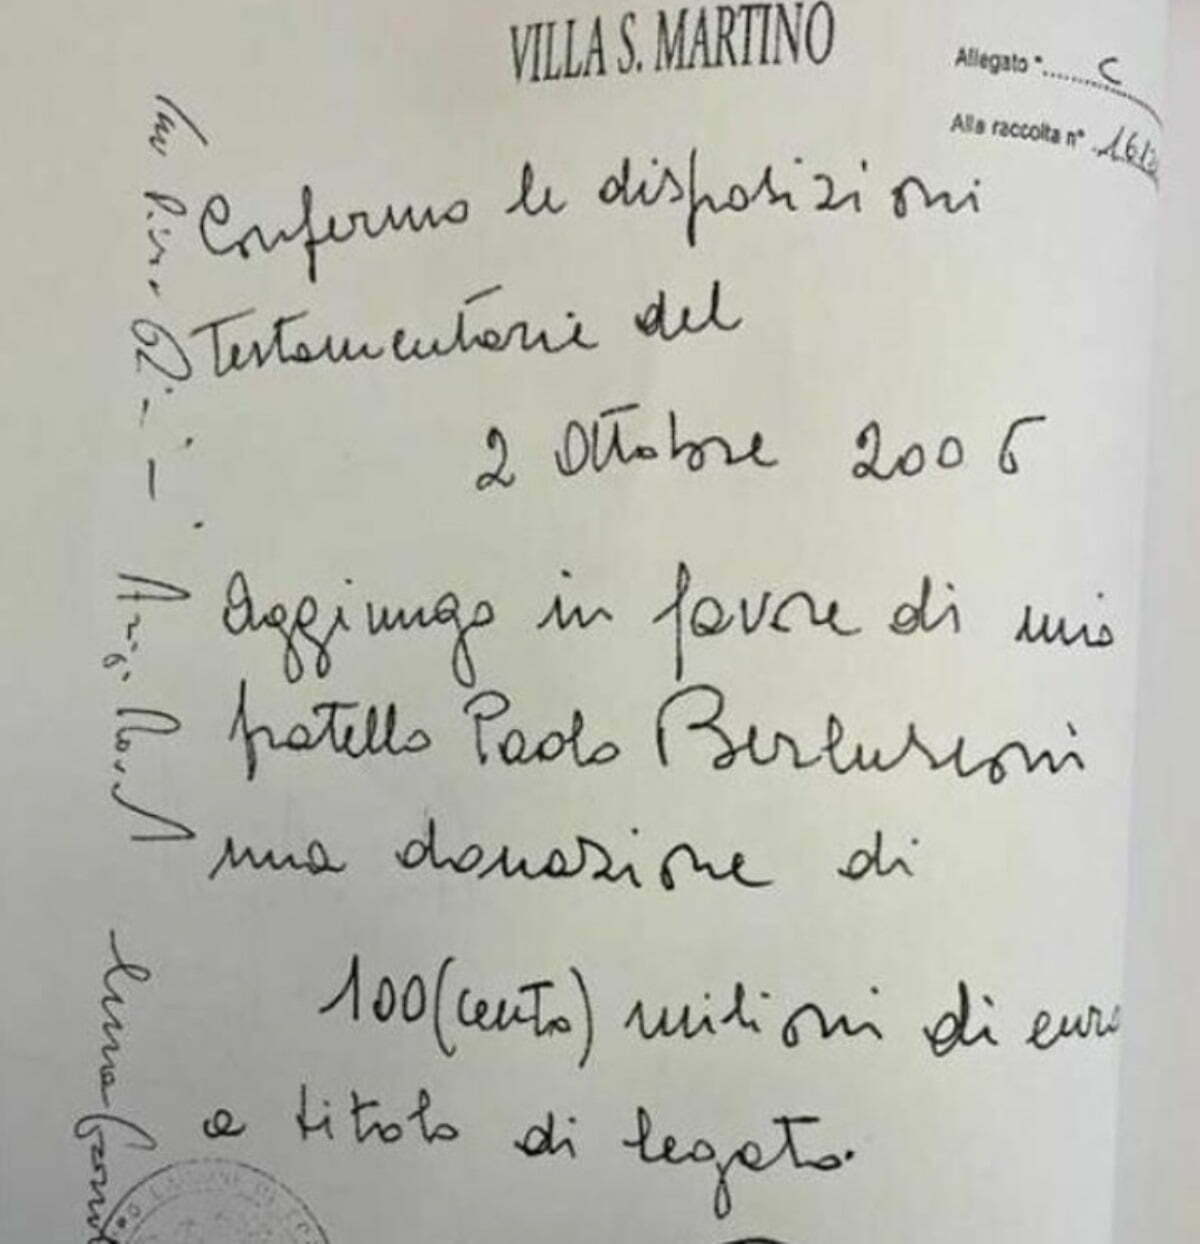 VILLA S. MARTINO
Allegato "......C
Alla raccolta n° 1613
Confermo le disposizioni
Testamentarie del
2 Ottobre 2006
Aggiungo in favore di mio
fratello Paolo Berlusconi
una donazione di
100 (cento) milioni di euro
a titolo di legato.